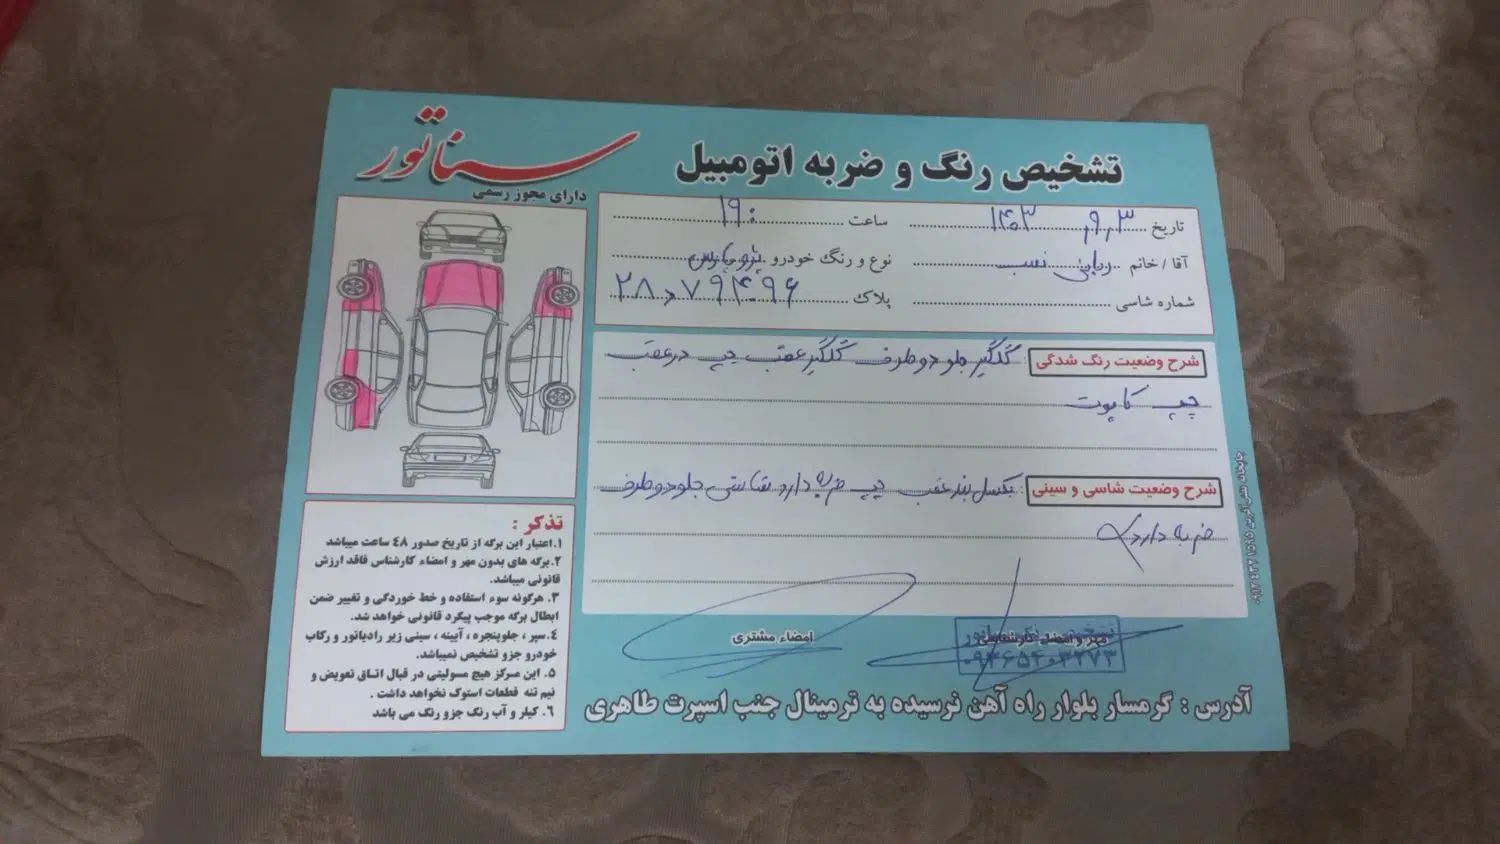 تشخیص رنگ و ضربه اتومبیل
سناتور
دارای مجوز رسمی
تاریخ ۱۴۰۳٫۹٫۳ ساعت ۱۹:
آقا / خانم نوع و رنگ خودرو پژو پارس
شماره شاسی پلاک
شرح وضعیت رنگ شدگی : گلگیر جلو دو طرف گلگیر عقب چپ درعقب
چپ کاپوت
شرح وضعیت شاسی و سینی : بکسل بند عقب چپ ضربه دارد شاسی جلو دو طرف
ضربه دارد
تذکر :
۱. اعتبار این برگه از تاریخ صدور ٤٨ ساعت میباشد
۲. برگه های بدون مهر و امضاء کارشناس فاقد ارزش
قانونی میباشد.
۳. هرگونه سوء استفاده و خط خوردگی و تغییر ضمن
ابطال برگه موجب پیگرد قانونی خواهد شد.
٤. سپر ، جلوپنجره ، آیینه ، سینی زیر رادیاتور و رکاب
خودرو جزو تشخیص نمیباشد.
۵. این مرکز هیچ مسولیتی در قبال اتاق تعویض و
نیم تنه قطعات استوک نخواهد داشت .
۶. کیلر و آب رنگ جزو رنگ می باشد
مهر و امضاء کارشناس
امضاء مشتری
آدرس : گرمسار بلوار راه آهن نرسیده به ترمینال جنب اسپرت طاهری